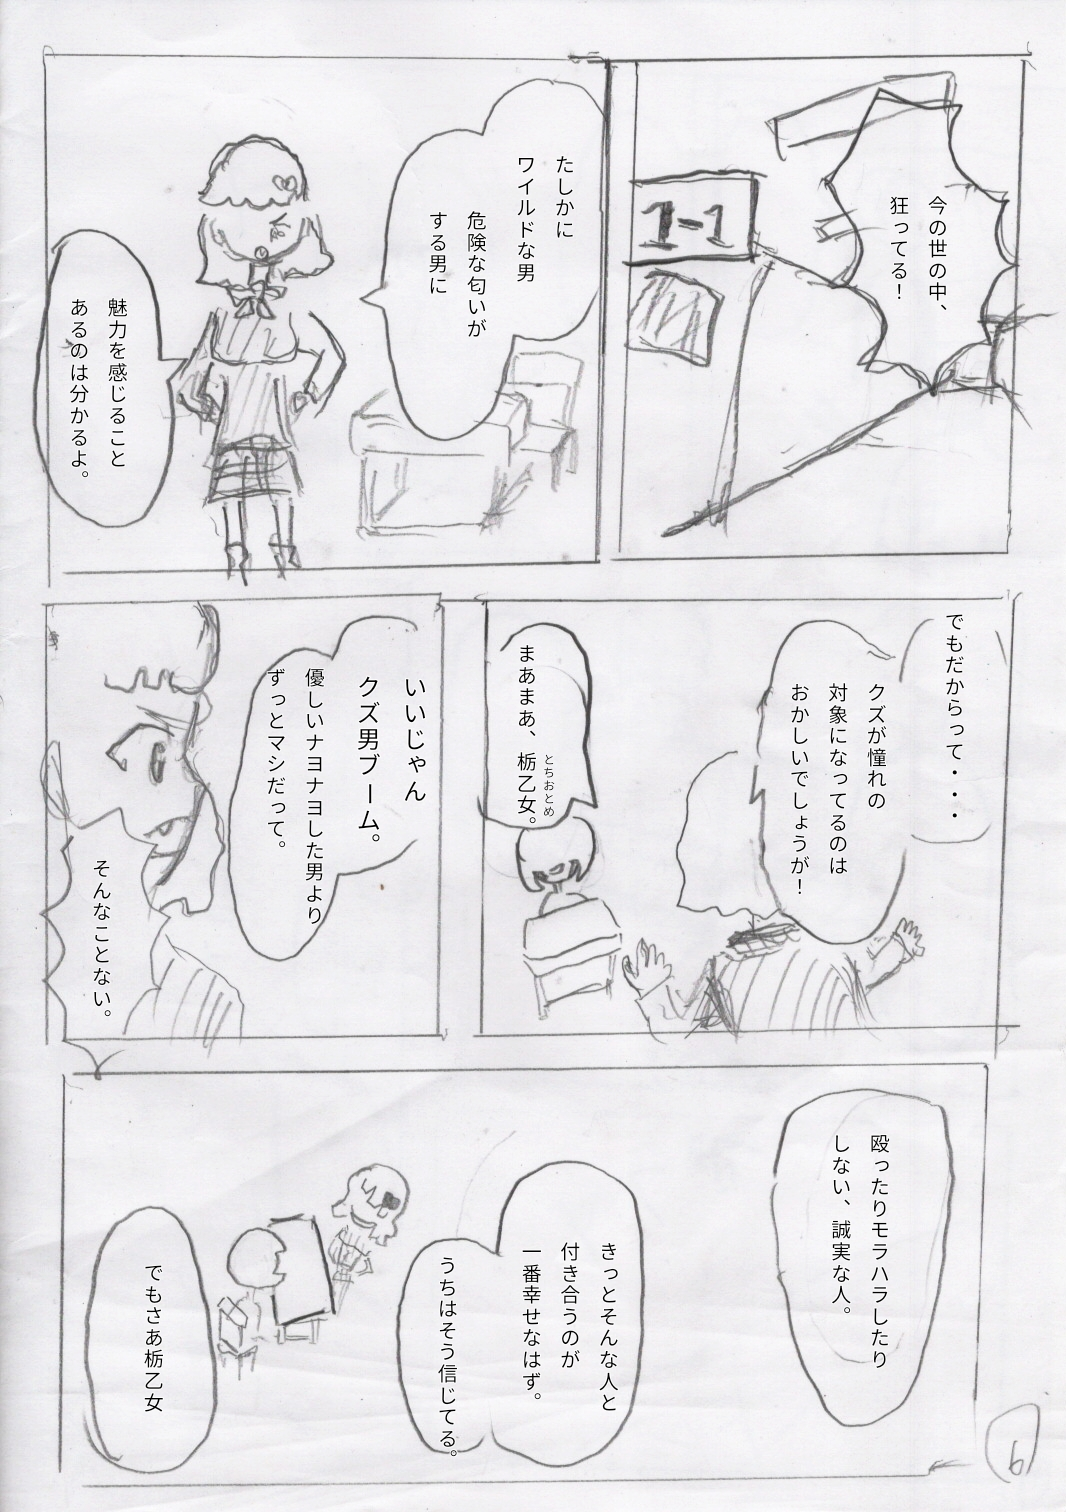 今の世の中、
狂ってる!
1-1
たしかに
ワイルドな男
危険な匂いが
する男に
魅力を感じること
あるのは分かるよ。
でもだからって・・・
クズが憧れの
対象になってるのは
おかしいでしょうが!
まあまあ、栃乙女。
とちおとめ
いいじゃん
クズ男ブーム。
優しいナヨナヨした男より
ずっとマシだって。
そんなことない。
殴ったりモラハラしたり
しない、誠実な人。
きっとそんな人と
付き合うのが
一番幸せなはず。
うちはそう信じてる。
でもさあ栃乙女
6